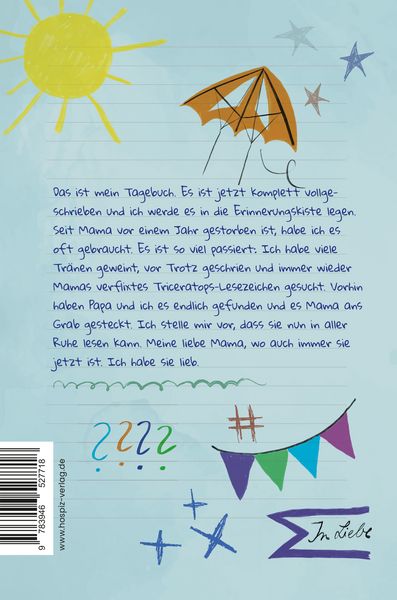 Das ist mein Tagebuch. Es ist jetzt komplett vollge-
schrieben und ich werde es in die Erinnerungskiste legen.
Seit Mama vor einem Jahr gestorben ist, habe ich es
oft gebraucht. Es ist so viel passiert: Ich habe viele
Tränen geweint, vor Trotz geschrien und immer wieder
Mamas verflixtes Triceratops-Lesezeichen gesucht. Vorhin
haben Papa und ich es endlich gefunden und es Mama ans
Grab gesteckt. Ich stelle mir vor, dass sie nun in aller
Ruhe lesen kann. Meine liebe Mama, wo auch immer sie
jetzt ist. Ich habe sie lieb.
????
#
In Liebe
9 783946 527718
www.hospiz-verlag.de